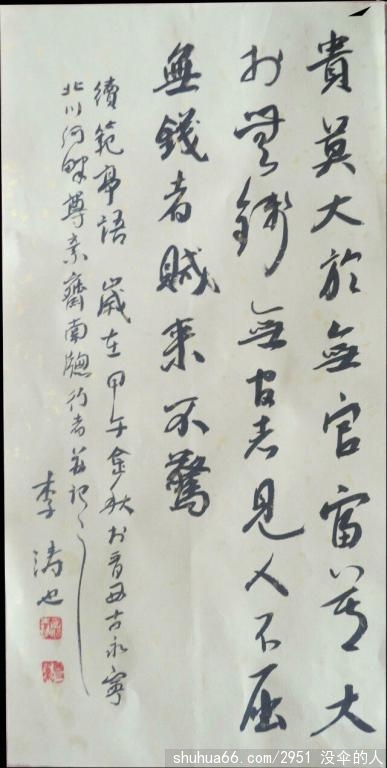 貴莫大於無官富莫大
於無錢無官者見人不屈
無錢者賊来不驚
續範亭語 歲在甲午金秋於晋西古永寧
北川河畔尊素齋南牕行者並記
李濤也
shuhua66.com/2951 没伞的人